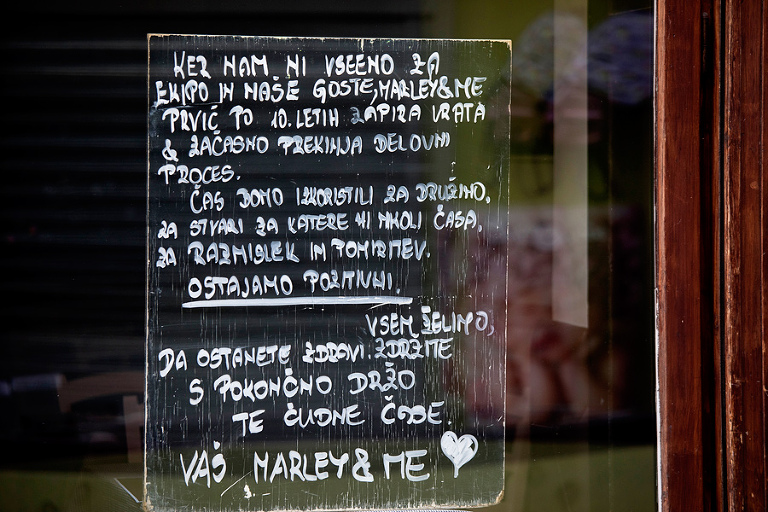 KER NAM NI VSEENO ZA
EKIPO IN NAŠE GOSTE, MARLEY&ME
PRVIČ PO 10. LETIH ZAPIRA VRATA
& ZAČASNO PREKINJA DELOVNI
PROCES.
ČAS BOMO IZKORISTILI ZA DRUŽINO,
ZA STVARI ZA KATERE NI NIKOLI ČASA,
ZA RAZMISLEK IN POMIRITEV.
OSTAJAMO POZITIVNI.
VSEM ŽELIMO,
DA OSTANETE ZDRAVI. ZDRŽITE
S POKONČNO DRŽO
TE ČUDNE ČASE.
VAŠ MARLEY & ME